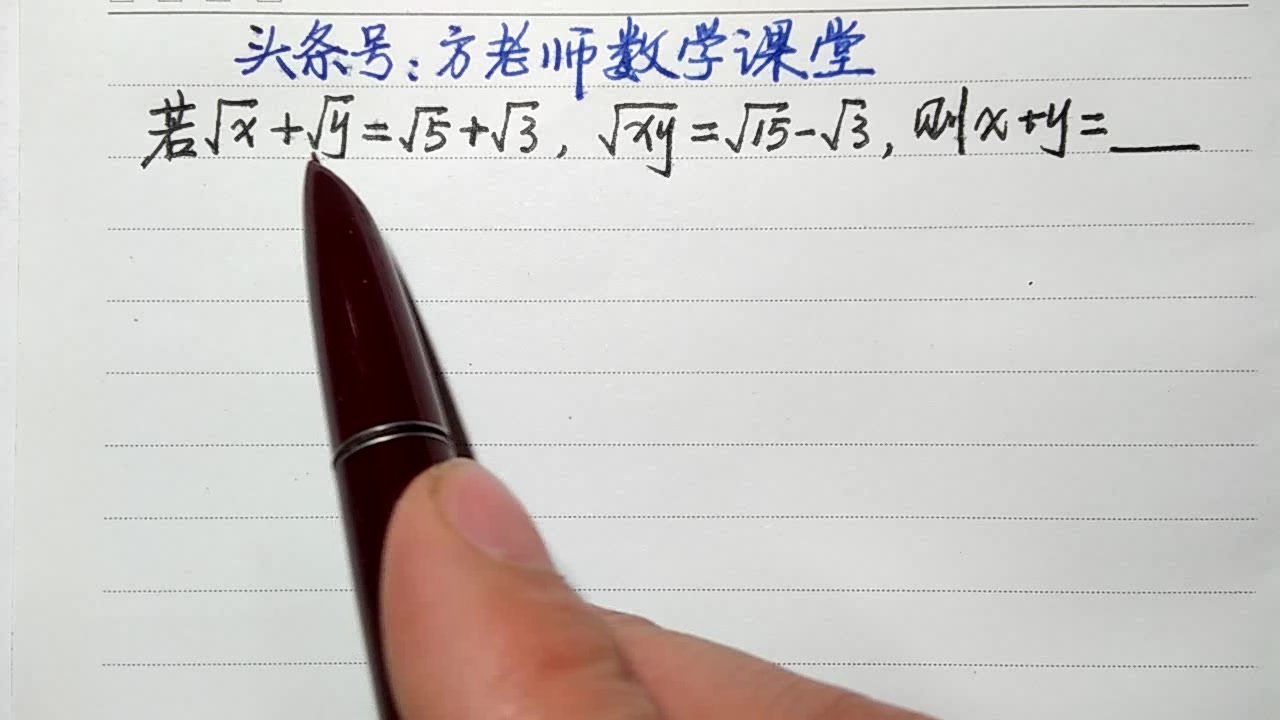 头条号:方老师数学课堂
若√x+√y=√5+√3, √xy=√15-√3, 则x+y=___